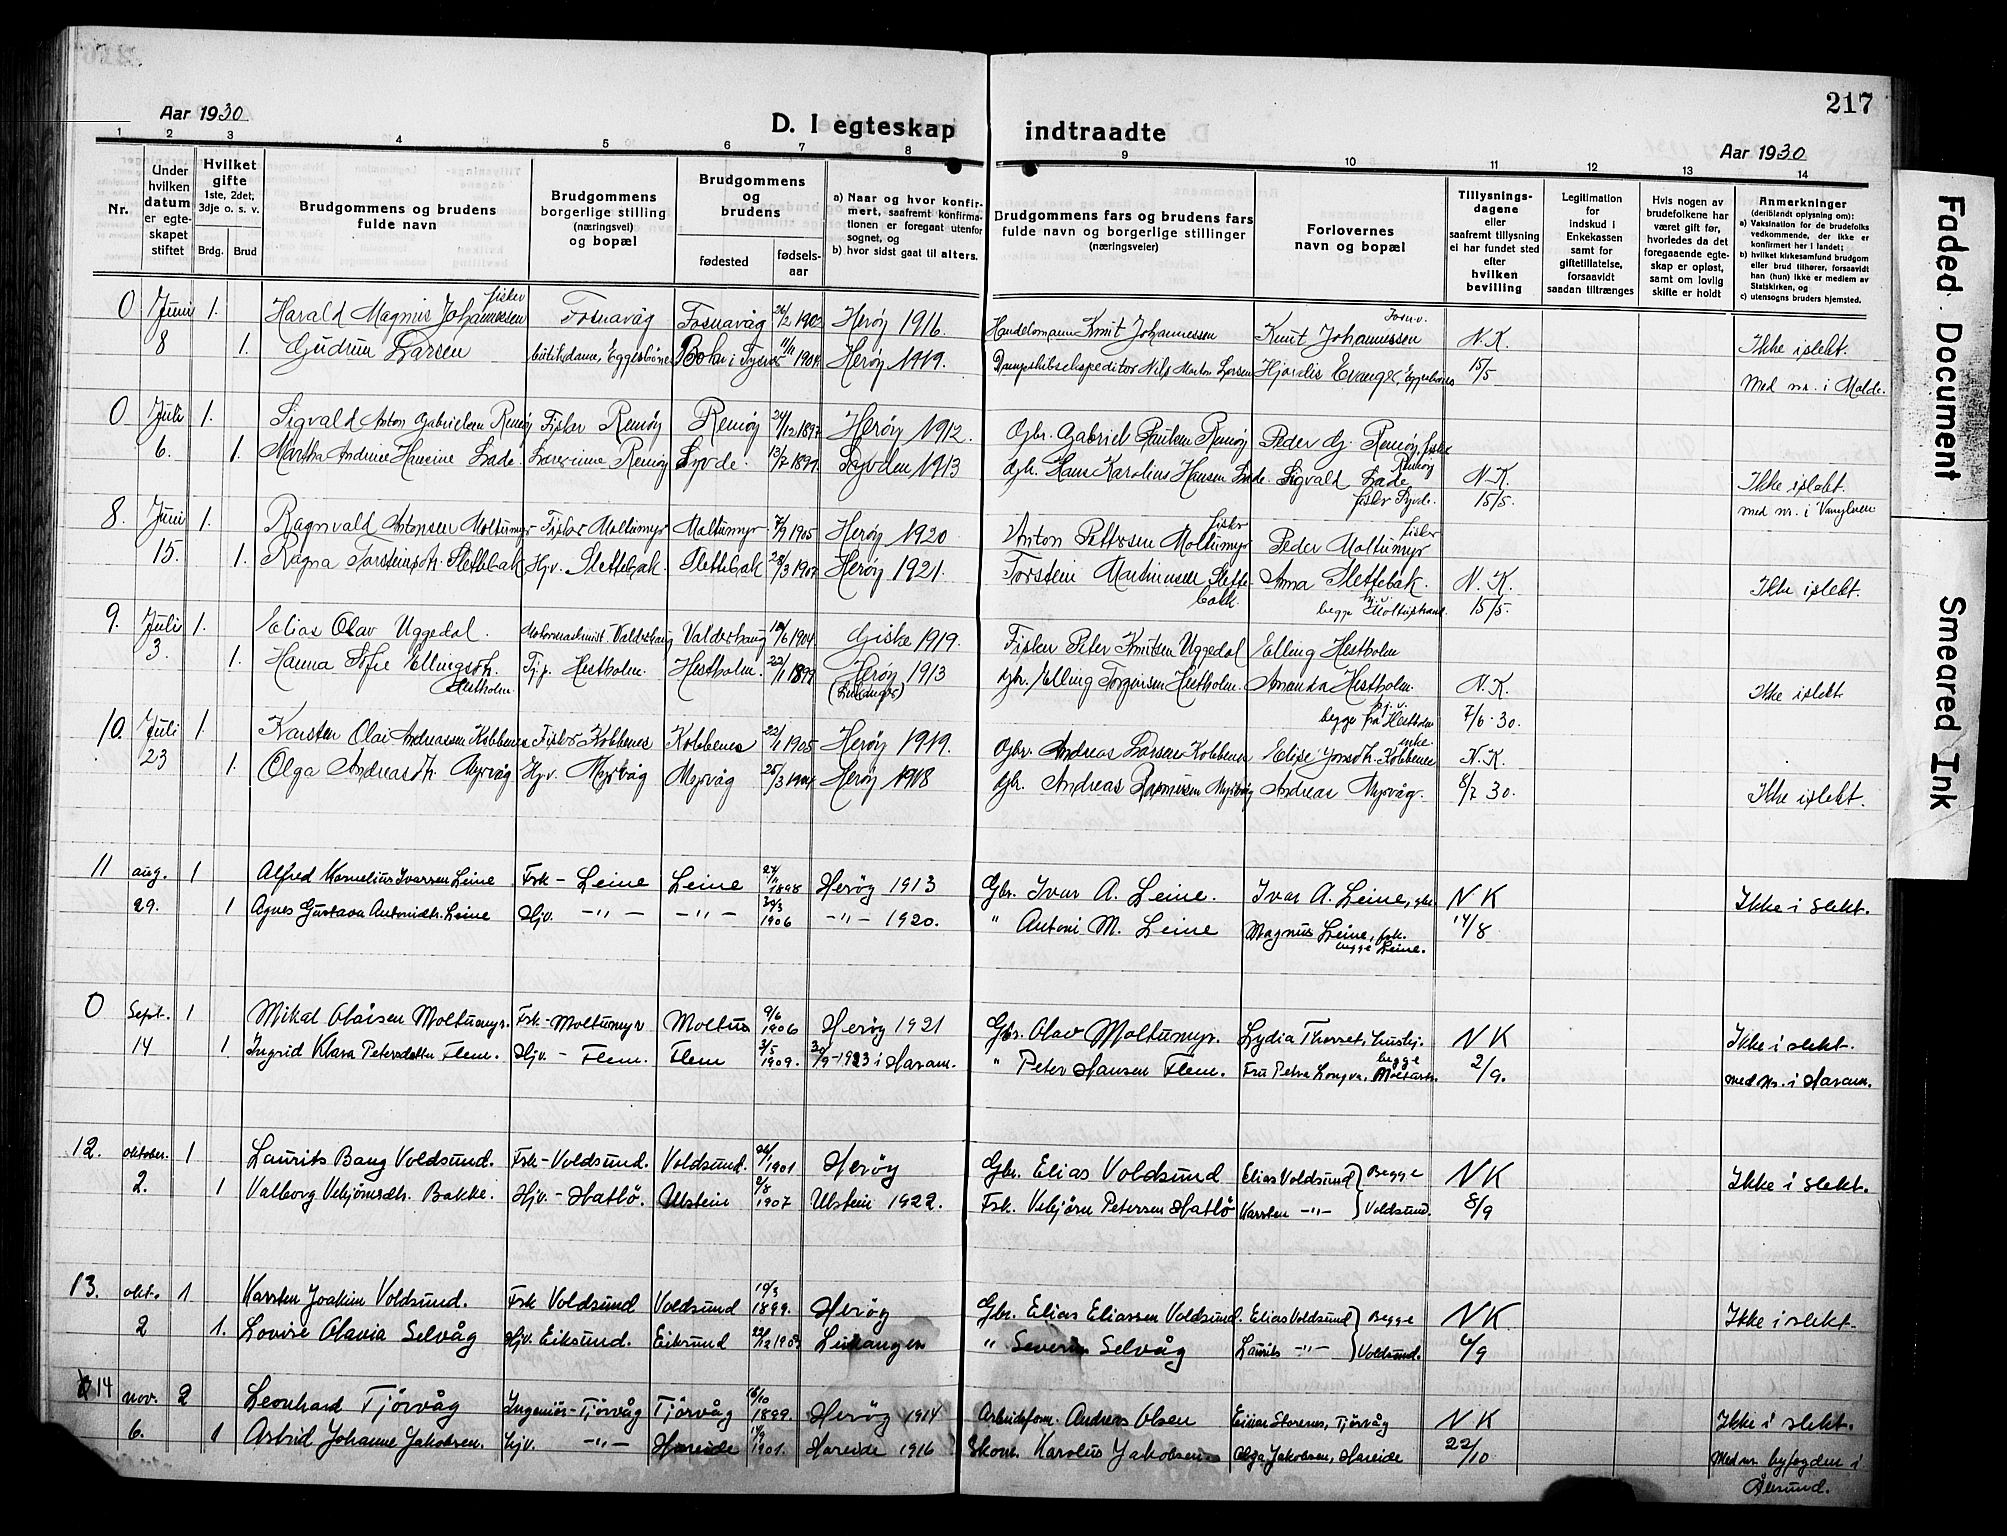 217
Aar 1930
D. I egteskap indtraadte
Aar 1930
1 2 3 4 5 6 7 8 9 10 11 12 13 14
Nr.
Under hvilken datum er egteskapet stiftet
Hvilket gifte 1ste, 2det, 3dje o. s. v.
Brdg. Brud
Brudgommens og brudens fulde navn
Brudgommens borgerlige stilling (næringsvei) og bopæl
Brudgommens og brudens
fødested fødselsaar
a) Naar og hvor konfirmert, saafremt konfirmationen er foregaat utenfor sognet, og
b) hvor sidst gaat til alters.
Brudgommens fars og brudens fars fulde navn og borgerlige stillinger (næringsveier)
Forlovernes navn og bopæl
Tillysningsdagene eller saafremt tillysning ei har fundet sted efter hvilken bevilling
Legitimation for indskud i Enkekassen samt for giftetillatelse, forsaavidt saadan tiltrænges
Hvis nogen av brudefolkene har været gift før, hvorledes da det foregaaende egteskap er opløst, samt om lovlig skifte er holdt
Anmerkninger (deriblandt oplysning om):
a) Vaksination for de brudefolks vedkommende, der ikke er konfirmert her i landet;
b) hvilket kirkesamfund brudgom eller brud tilhører, forsaavidt han (hun) ikke er medlem av Statskirken, og
c) utensogns bruders hjemsted.
0 Juni 1. Harald Magnus Johannessen fisker Fosnavåg Fosnavåg Herøy 1916. Handelsmann Knut Johannessen Knut Johannessen Fosnv. N.K. Ikke i slekt.
8 1. Gudrun Larsen Eggesbønes 11/11 1904 Herøy 1919. Dampskibsekspeditør Nils Larsen Hjørdis Evange, Eggesbønes 15/5 Med nr. i Molde.
0 Juli 1. Sigvald Anton Gabrielsen Remøy Fisker Remøy Remøy 24/12 1897 Herøy 1912. Gbr. Gabriel Paulsen Remøy Peder G. Remøy, fisker Remøy
6. 1. Martha Andrine Hansine Lade. Remøy Syvde. 13/7 1899. Syvden 1913 Gbr. Hans Karolius Hansen Lade. Sigvald Lade fisker Syvde. N.K. 15/5. Ikke i slekt. med nr. i Vanylven
8. Juni 1. Ragnvald Antonsen Moltumyr Fisker Moltumyr Moltumyr 1905 Herøy 1920 Anton Pettersen Moltumyr fisker Peder Moltumyr fisker
15. 1. Ragna Torsteinsdtr. Slettebak Hjv. Slettebak Slettebak Herøy 1921. Torstein Martinussen Slettebakk. Anna Slettebak. hj.v. begge Moltustrand. N.K. 15/5. Ikke i slekt.
9. Juli 1. Elias Olav Uggedal. Valderhaug Valderhaug 1904. Giske 1919. Fisker Peter Knutsen Uggedal Elling Hestholm
3. 1. Hanna Sofie Ellingsdtr. Hestholm. Tj.p. Hestholm. Hestholm. 22/11 1899 Herøy 1913 (Leikanger) Gbr. Elling Torgersen Hestholm. Amanda Hestholm. hj.v. begge fra Hestholm N.K. 7/6-30. Ikke i slekt
10. Juli 1. Karsten Olai Andreassen Kobbenes Fisker Kobbenes Kobbenes 1905 Herøy 1919. Gbr. Andreas Larsen Kobbenes Elise Jonsdtr. Kobbenes enke. N.K.
23 1. Olga Andreasdtr. Myrvåg Hj.v. Myrvåg Myrvåg 25/3 1904 Herøy 1918 Gbr. Andreas Rasmussen Myrvåg Andreas Myrvåg. 8/7 30. Ikke i slekt.
11 aug. 1 Alfred Kornelius Ivarsen Leine Fsk - Leine Leine 1898 Herøy 1913 Gbr. Ivar A. Leine. Ivar A. Leine, gbr. N K Ikke i slekt.
29. 1 Agnes Gustava Antonidtr. Leine Hjv. -"- -"- 1906 -"- 1920. " Antoni M. Leine Magnus Leine, fsk. begge Leine. 14/8
0 Sept. 1 Mikal Olaisen Moltumyr. Fsk - Moltumyr Moltu 9/6 1906 Herøy 1921 Gbr. Olav Moltumyr. Lydia Thorset, hushj. N K Ikke i slekt.
14 1. Ingrid Klara Petersdatter Flem. Hjv. - Flem. Flem 3/5 1909. 1923 i Haram. " Peter Hansen Flem. Fru Petra Longva, begge 2/9. med nr. i Haram.
12. oktober. 1 Laurits Bang Voldsund. Fsk - Voldsund. Voldsund. 1901 Herøy Gbr. Elias Voldsund Elias Voldsund } Begge N K Ikke i slekt.
2. 1 Valborg Vebjørnsdtr. Bakke. Hjv. - Hatlø. Ulstein 1907 Ulstein 1922. Fsk. Vebjørn Petersen Hatlø Karsten -"- } Voldsund. 8/9
13. okt. 1 Karsten Joakim Voldsund. Fsk Voldsund Voldsund 10/3 1899. Herøy Gbr. Elias Eliassen Voldsund. Elias Voldsund } Begge N K Ikke i slekt.
2 1. Lovise Olavia Selvåg Hjv. Eiksund. Eiksund Leikanger " Severin Selvåg Laurits -"- } Voldsund. /9
14 nov. 2 Leonhard Tjørvåg Ingeniør - Tjørvåg Tjørvåg 1899. Herøy 1914 Arbeidsform. Andreas Olsen Einar Storenes, Tjørvåg N K Ikke i slekt.
6. 1 Astrid Johanne Jakobsen. hjv. -"- Hareide 1901. Hareide 1916 Skom. Karolus Jakobsen Olga Jakobsen, Hareide 22/10 Med nr. byfogden i Ålesund.
Faded Document
Smeared Ink